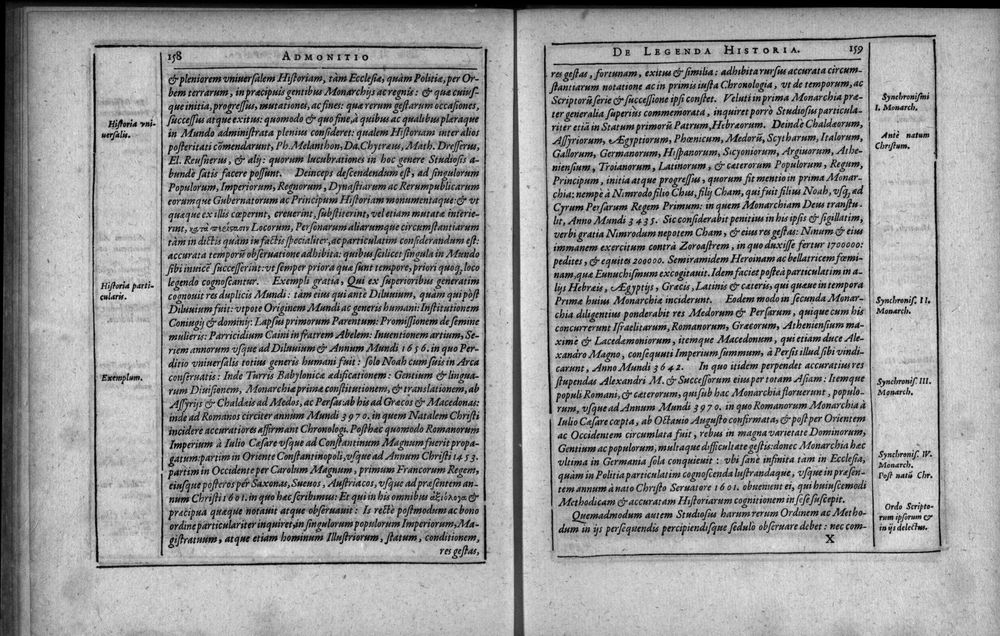 158 ADMONITIO
& pleniorem vniuersalem Historiam, tàm Ecclesiæ, quàm Politiæ, per Or-
bem terrarum, in præcipuis gentibus Monarchijs ac regnis: & quæ cuius-
que initia, progressus, mutationes, ac fines: quæ rerum gestarum occasiones,
successus atque exitus: quomodo & quo fine, à quibus ac qualibus pleraque
Historia vni-
uersalis.
in Mundo administrata plenius consideret: qualem Historiam inter alios
posteritati cōmendarunt, Ph. Melanthon, Da. Chytræus, Math. Dresserus,
El. Reusnerus, & alij: quorum lucubrationes in hoc genere Studiosis a-
bundè satis facere possunt. Deinceps descendendum est, ad singulorum
Populorum, Imperiorum, Regnorum, Dynastiarum ac Rerumpublicarum
eorumque Gubernatorum ac Principum Historiam monumentaque: & vt
quæque ex illis cœperint, creuerint, substiterint, vel etiam mutatæ interie-
rint, Locorum, Personarum aliarumque circumstantiarum
tàm in dictis quàm in factis specialiter, ac particulatim considerandum est:
accurata temporū obseruatione adhibita: quibus scilicet singula in Mundo
sibi inuicē successerint: vt semper priora quæ sunt tempore, priori quoq, loco
Historia parti-
cularis.
legendo cognoscantur. Exempli gratia, Qui ex superioribus generatim
cognouit res duplicis Mundi: tàm eius qui antè Diluuium, quàm qui pòst
Diluuium fuit: vtpote Originem Mundi ac generis humani: Institutionem
Coniugij & dominij: Lapsus primorum Parentum: Promissionem de semine
mulieris: Parricidium Caini in fratrem Abelem: Inuentionem artium, Se-
riem annorum vsque ad Diluuium & Annum Mundi 1656. in quo Per-
ditio vniuersalis totius generis humani fuit: solo Noah cum suis in Arca
Exemplum.
conseruatis: Inde Turris Babylonicæ ædificationem: Gentium & lingua-
rum Diuisionem, Monarchiæ primæ constitutionem, & translationem, ab
Assyrijs & Chaldæis ad Medos, ac Persas: ab his ad Græcos & Macedonas:
inde ad Romanos circiter annum Mundi 3970. in quem Natalem Christi
incidere accuratiores affirmant Chronologi. Posthæc quomodo Romanorum
Imperium à Iulio Cæsare vsque ad Constantinum Magnum fuerit propa-
gatum: partim in Oriente Constantinopoli, vsque ad Annum Christi 1453.
partim in Occidente per Carolum Magnum, primum Francorum Regem,
eiusque posteros per Saxonas, Sueuos, Austriacos, vsque ad præsentem an-
num Christi 1601. in quo hæc scribimus: Et qui in his omnibus ἀξιόλογα &
præcipua quæque notauit atque obseruauit: Is rectè postmodum ac bono
ordine particulariter inquiret, in singulorum populorum Imperiorum, Ma-
gistratuum, atque etiam hominum Illustriorum, statum, conditionem,
res gestas,
DE LEGENDA HISTORIA. 159
res gestas, fortunam, exitus & similia: adhibita rursus accurata circum-
stantiarum notatione ac in primis iusta Chronologia, vt de temporum, ac
Scriptorū serie & successione ipsi constet. Veluti in prima Monarchia præ-
Synchronismi
I. Monarch.
ter generalia superius commemorata, inquiret porrò Studiosus particula-
riter etiā in Statum primorū Patrum, Hebræorum. Deindè Chaldæorum,
Assyriorum, Ægyptiorum, Phœnicum, Medorū, Scytharum, Italorum,
Antè natum
Christum.
Gallorum, Germanorum, Hispanorum, Sicyoniorum, Argiuorum, Athe-
niensium, Troianorum, Latinorum, & cæterorum Populorum, Regum,
Principum, initia atque progressus, quorum fit mentio in prima Monar-
chia: nempè à Nimrodo filio Chus, filij Cham, qui fuit filius Noah, vsq, ad
Cyrum Persarum Regem Primum: in quem Monarchiam Deus transtu-
lit, Anno Mundi 3435. Sic considerabit penitius in his ipsis & sigillatim,
verbi gratia Nimrodum nepotem Cham, & eius res gestas: Ninum & eius
immanem exercitum contrà Zoroastrem, in quo duxisse fertur 1700000.
pedites, & equites 200000. Semiramidem Heroinam ac bellatricem fœmi-
nam, quæ Eunuchismum excogitauit. Idem faciet posteà particulatim in a-
lijs Hebræis, Ægyptijs, Græcis, Latinis & cæteris, qui quæue in tempora
Primæ huius Monarchiæ inciderunt. Eodem modo in secunda Monar-
Synchronis. II.
Monarch.
chia diligentius ponderabit res Medorum & Persarum, quique cum his
concurrerunt Israëlitarum, Romanorum, Græcorum, Atheniensium ma-
ximè & Lacedæmoniorum, itemque Macedonum, qui etiam duce Ale-
xandro Magno, consequuti Imperium summum, à Persis illud sibi vindi-
carunt, Anno Mundi 3642. In quo itidem perpendet accuratius res
Synchronis. III.
Monarch.
stupendas Alexandri M. & Successorum eius per totam Asiam: Itemque
populi Romani, & cæterorum, qui sub hac Monarchia floruerunt, populo-
rum, vsque ad Annum Mundi 3970. in quo Romanorum Monarchia à
Iulio Cæsare cœpta, ab Octauio Augusto confirmata, & post per Orientem
ac Occidentem circumlata fuit, rebus in magna varietate Dominorum,
Gentium ac populorum, multaque difficultate gestis: donec Monarchia hæc
Synchronis. IV.
Monarch.
Post natū Chr.
vltima in Germania sola conquieuit: vbi sanè infinita tàm in Ecclesia,
quàm in Politia particulatim cognoscenda lustrandaque, vsque in præsen-
tem annum à nato Christo Seruatore 1601. obuenient ei, qui huiuscemodi
Methodicam & accuratam Historiarum cognitionem in sese suscepit.
Ordo Scripto-
rum ipsorum &
in ijs delectus.
Quemadmodum autem Studiosus harum rerum Ordinem ac Metho-
dum in ijs persequendis percipiendisque sedulò obseruare debet: nec com-
X